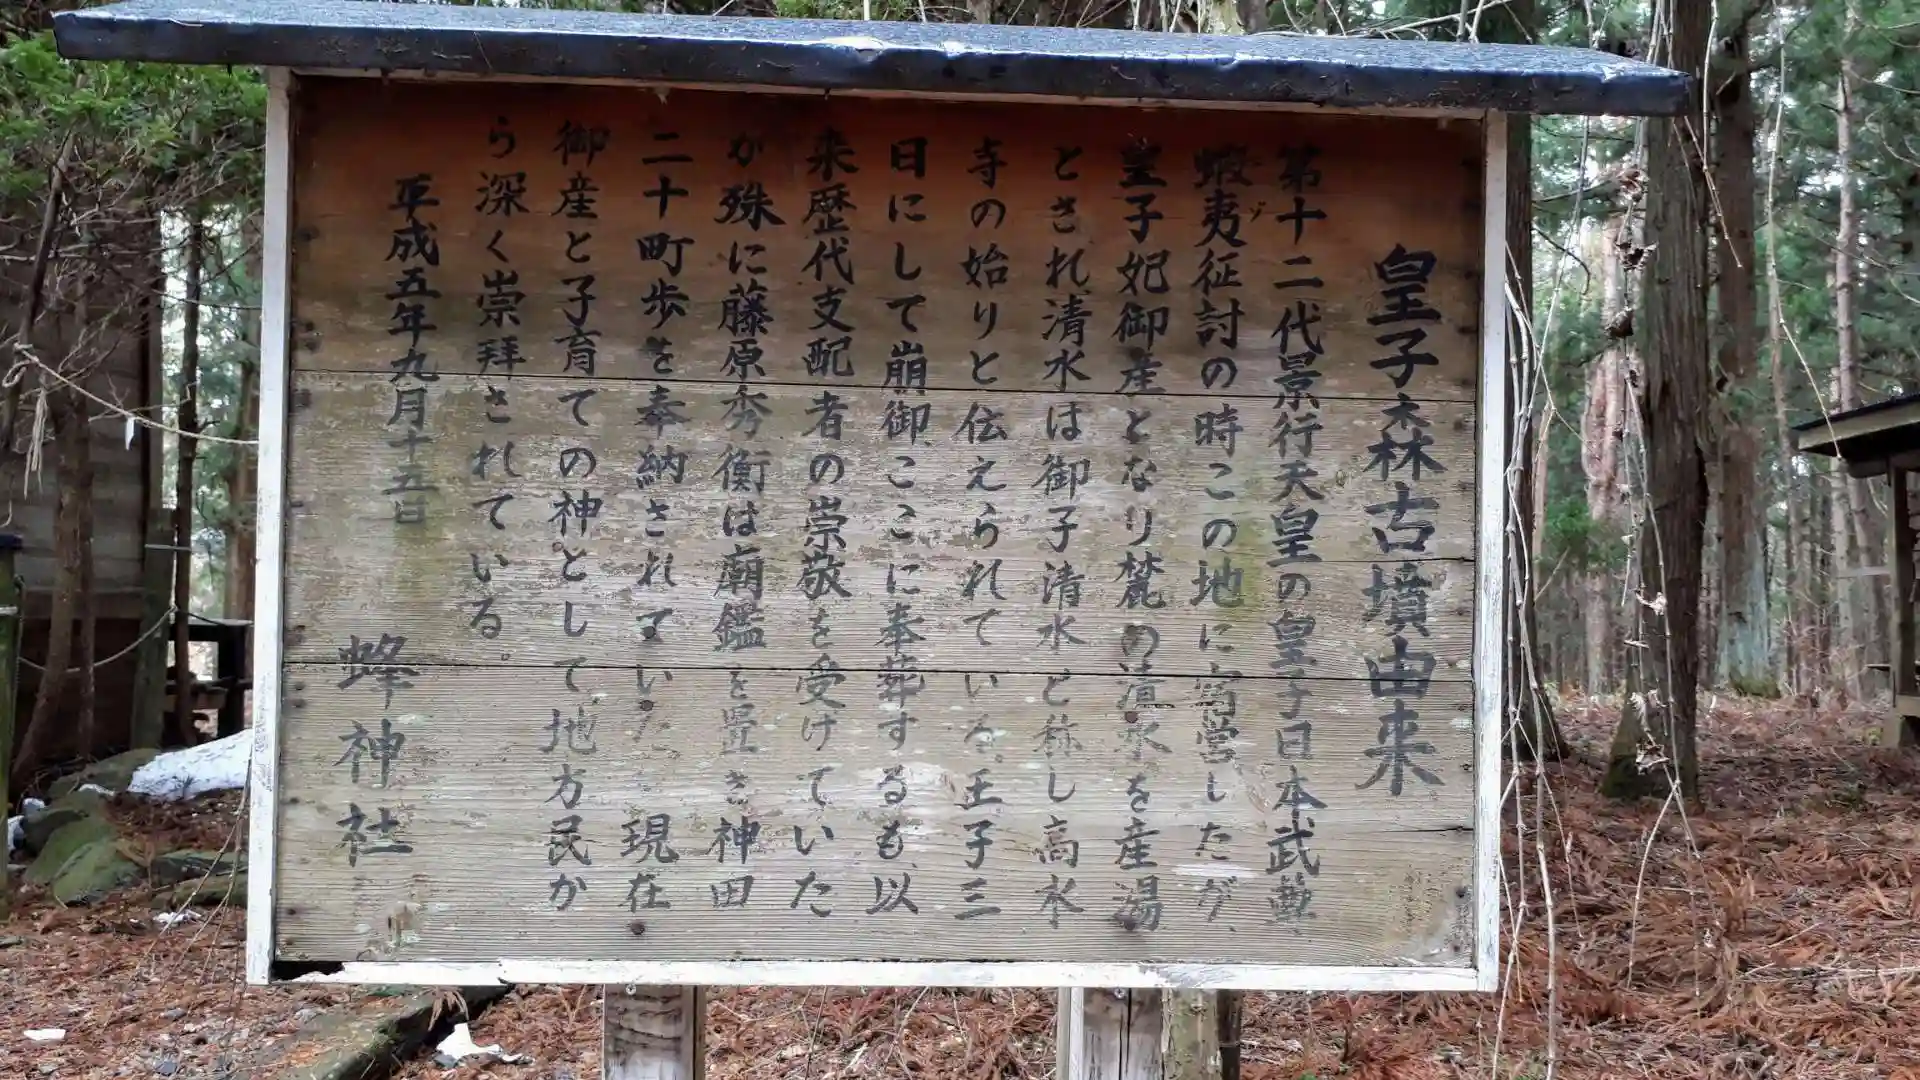 皇子森古墳由来
第十二代景行天皇の皇子日本武尊
蝦夷征討の時この地に寓営したが、
皇子妃御産となり麓の清水を産湯
とされ、清水は御子清水と称し高水
寺の始りと伝えられている。王子三
日にして崩御、ここに奉葬するも、以
来歴代支配者の崇敬を受けていた
が殊に藤原秀衡は廟鑑を置き神田
二十町歩を奉納されていた。現在
御産と子育ての神として地方民か
ら深く崇拝されている。
平成五年九月十五日
蜂神社